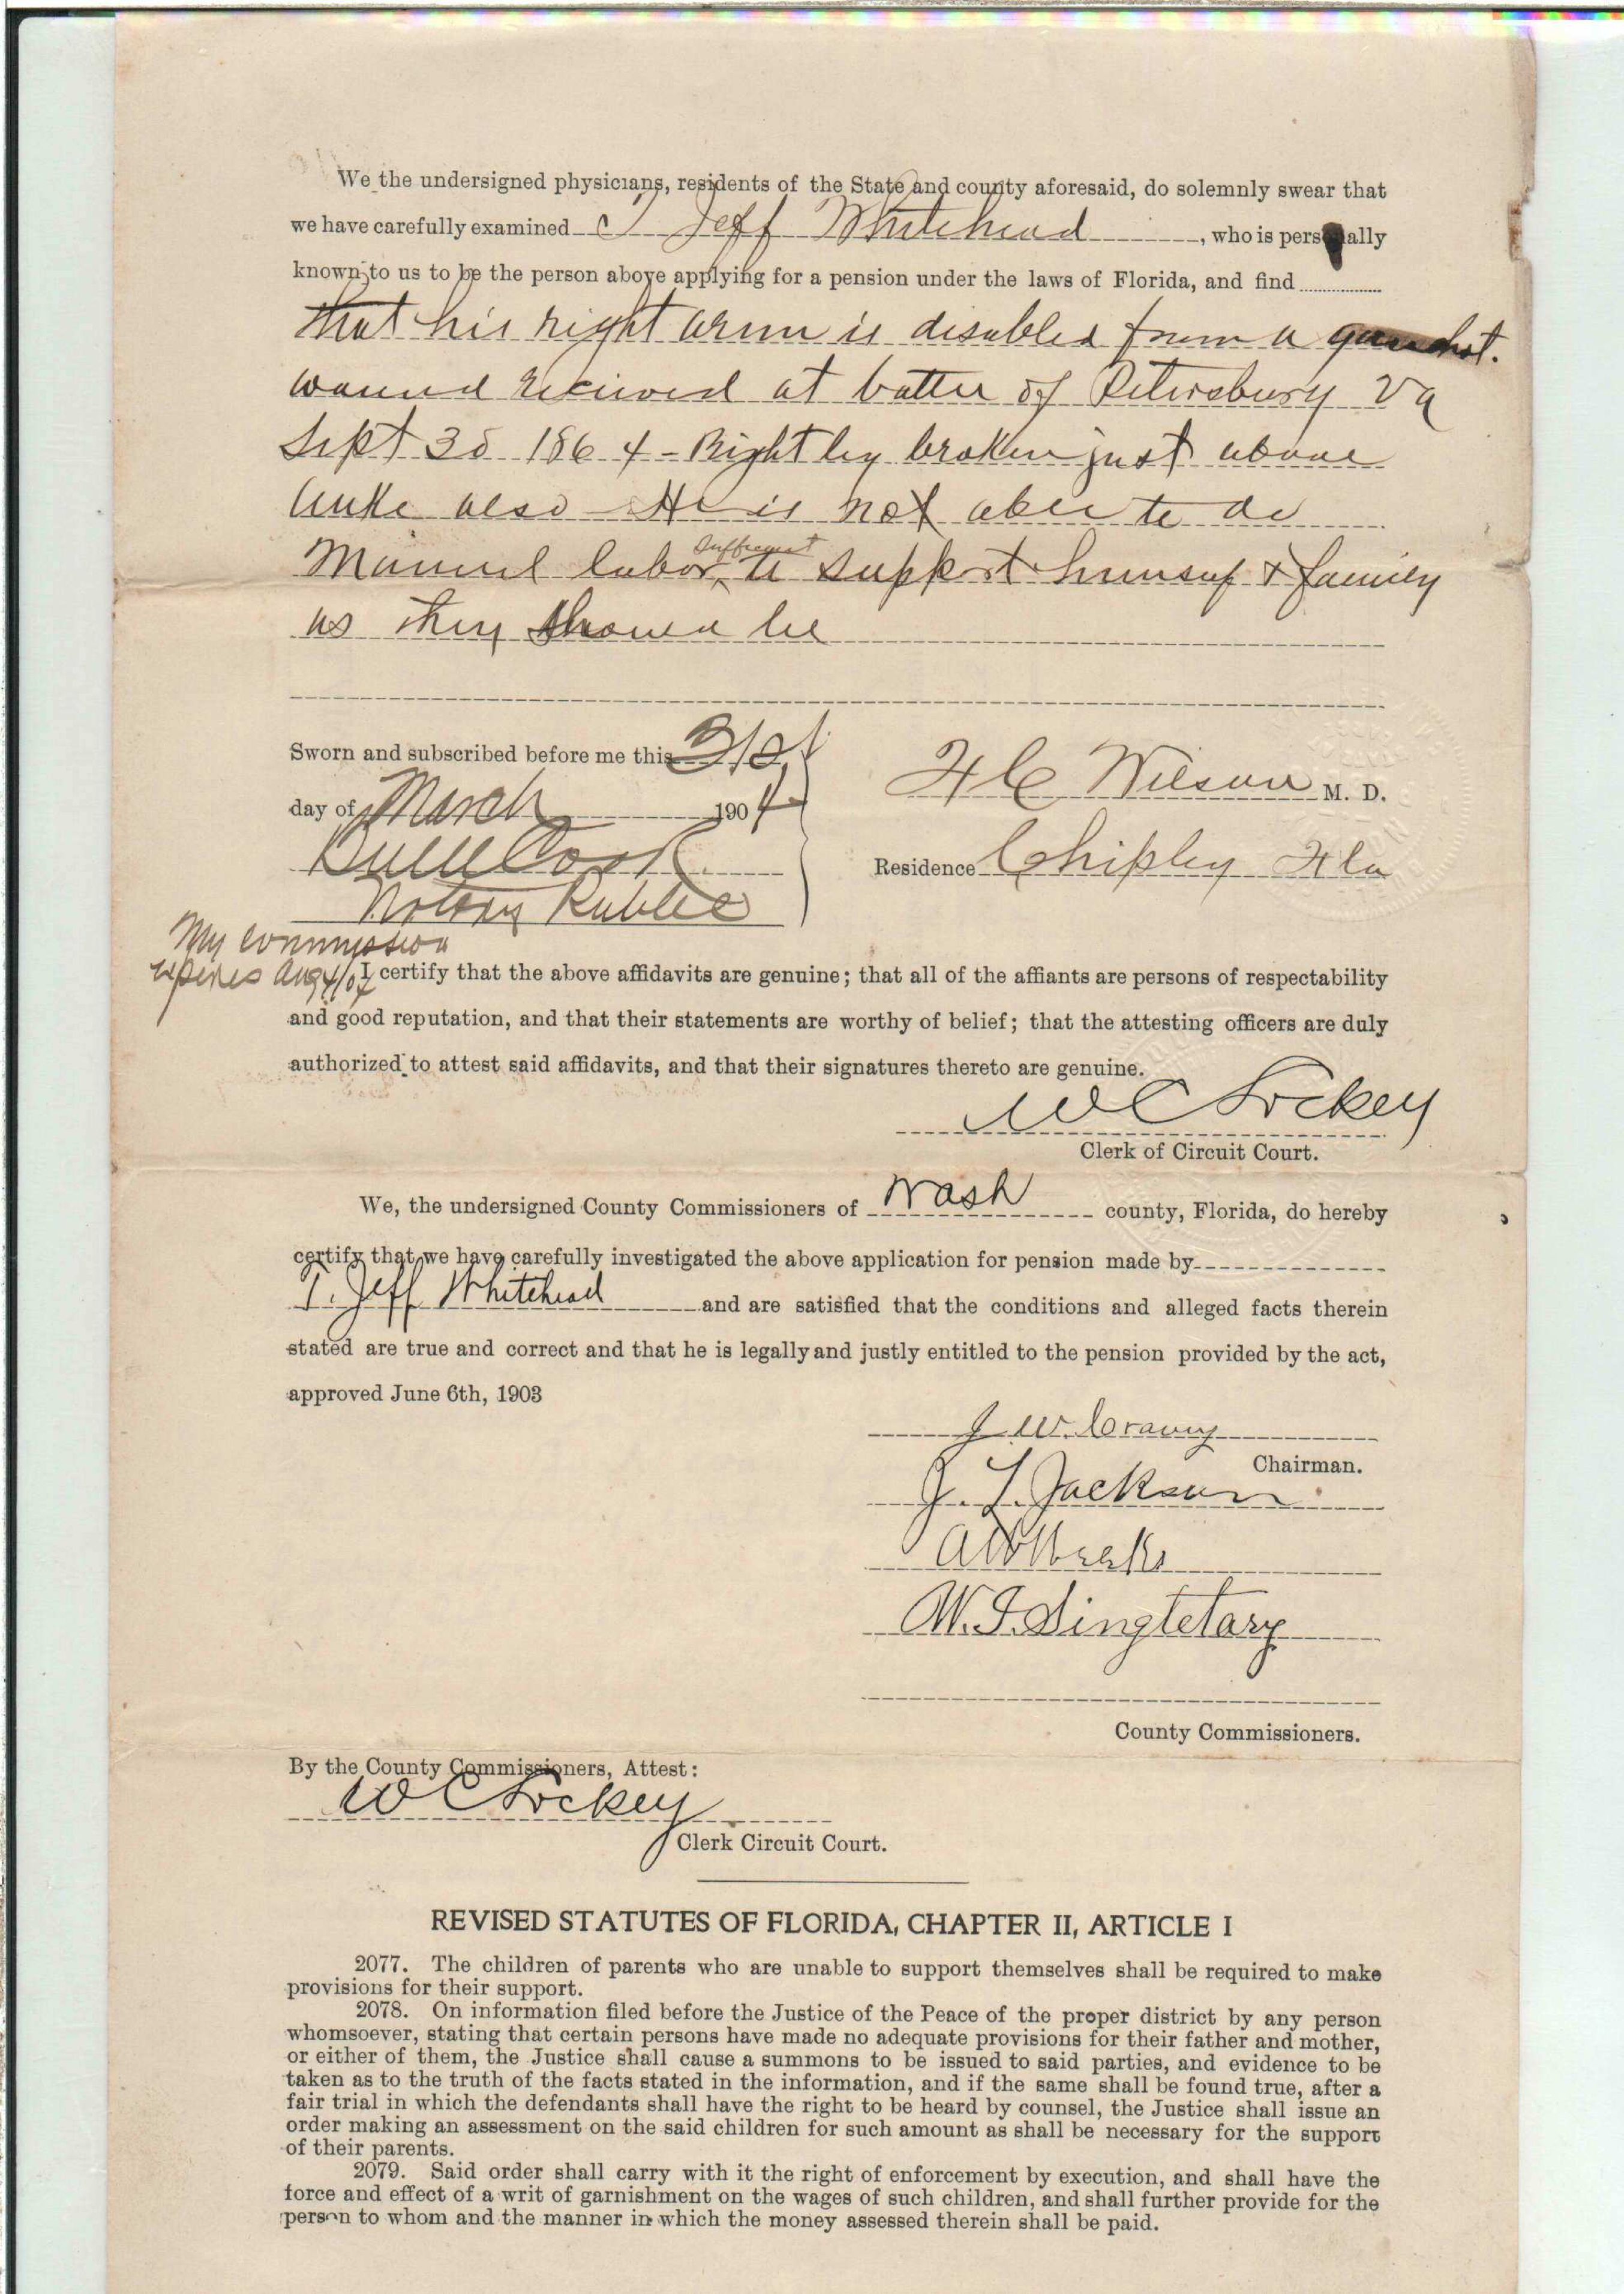 We the undersigned physicians, residents of the State and county aforesaid, do solemnly swear that
we have carefully examined T Jeff Whitehead, who is personally
known to us to be the person above applying for a pension under the laws of Florida, and find
that his right arm is disabled from a gunshot.
wound received at battle of Petersburg Va
Sept 30 1864 - Right leg broken just above
ankle also - He is not able to do
Manual labor sufficient to support himself & family
as they should be
Sworn and subscribed before me this 31st
day of March 1904
H C Wilson M. D.
Residence Chipley Fla
Cook
Notary Public
My commission
expires Aug 4/07
I certify that the above affidavits are genuine; that all of the affiants are persons of respectability
and good reputation, and that their statements are worthy of belief; that the attesting officers are duly
authorized to attest said affidavits, and that their signatures thereto are genuine.
W C Lockey
Clerk of Circuit Court.
We, the undersigned County Commissioners of Wash county, Florida, do hereby
certify that we have carefully investigated the above application for pension made by
T. Jeff Whitehead and are satisfied that the conditions and alleged facts therein
stated are true and correct and that he is legally and justly entitled to the pension provided by the act,
approved June 6th, 1903
J. W. Cravey
Chairman.
J. L. Jackson
A W Weeks
W. J. Singletary
County Commissioners.
By the County Commissioners, Attest:
W C Lockey
Clerk Circuit Court.
REVISED STATUTES OF FLORIDA, CHAPTER II, ARTICLE I
2077. The children of parents who are unable to support themselves shall be required to make
provisions for their support.
2078. On information filed before the Justice of the Peace of the proper district by any person
whomsoever, stating that certain persons have made no adequate provisions for their father and mother,
or either of them, the Justice shall cause a summons to be issued to said parties, and evidence to be
taken as to the truth of the facts stated in the information, and if the same shall be found true, after a
fair trial in which the defendants shall have the right to be heard by counsel, the Justice shall issue an
order making an assessment on the said children for such amount as shall be necessary for the support
of their parents.
2079. Said order shall carry with it the right of enforcement by execution, and shall have the
force and effect of a writ of garnishment on the wages of such children, and shall further provide for the
person to whom and the manner in which the money assessed therein shall be paid.